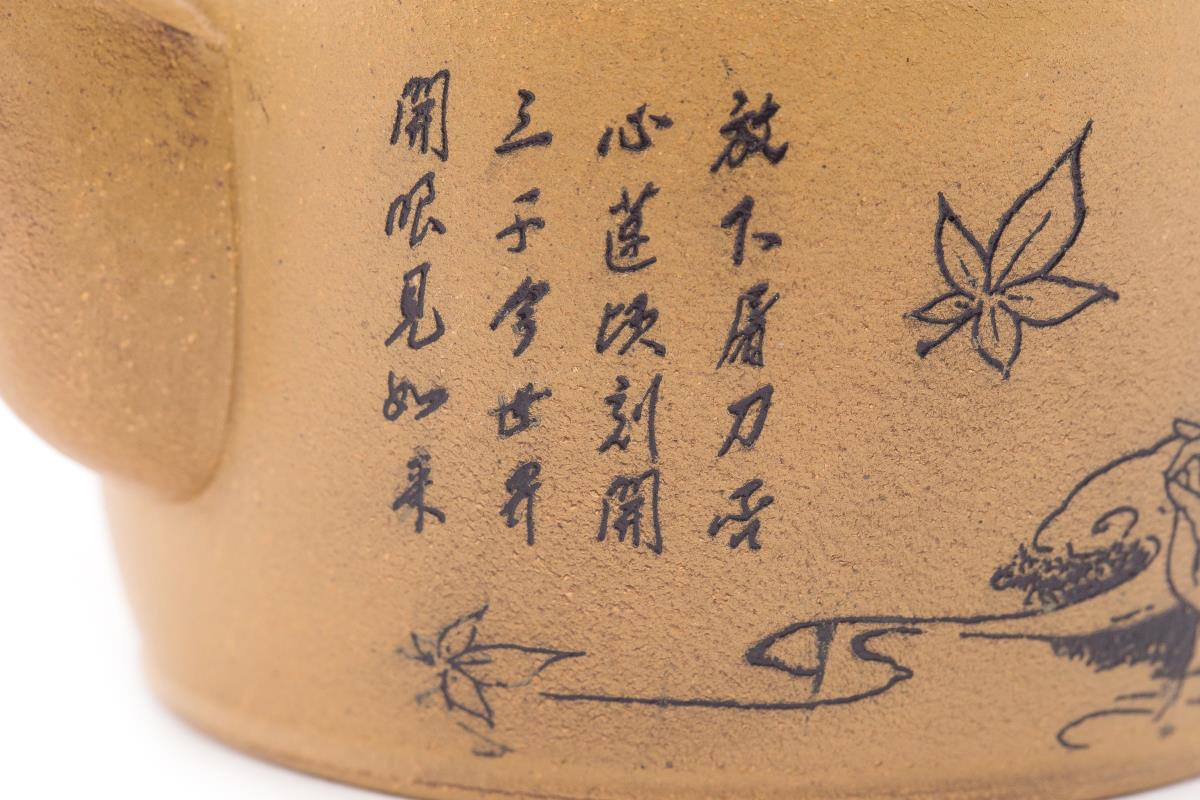 放下屠刀否
心蓮頃刻開
三千世界
開眼見如来